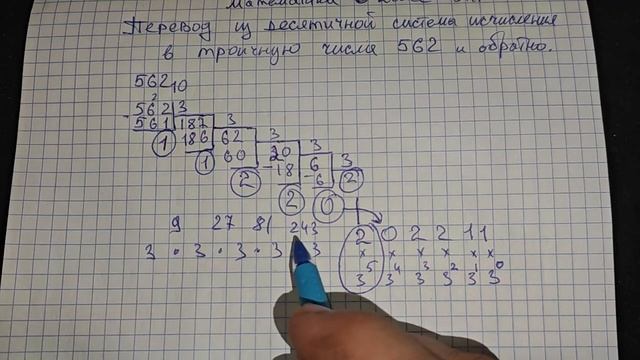 Перевод из десятичной система исчисления
в троичную числа 562 и обратно.
562₁₀
2
- 562 3
561 187 3
1 186 62 3
1 60 20 3
2 - 18 6 3
2 - 6 2
0
9 27 81 243
3 · 3 · 3 · 3 3
2 0 2 2 1 1
x x x x x x
3⁵ 3⁴ 3³ 3² 3¹ 3⁰